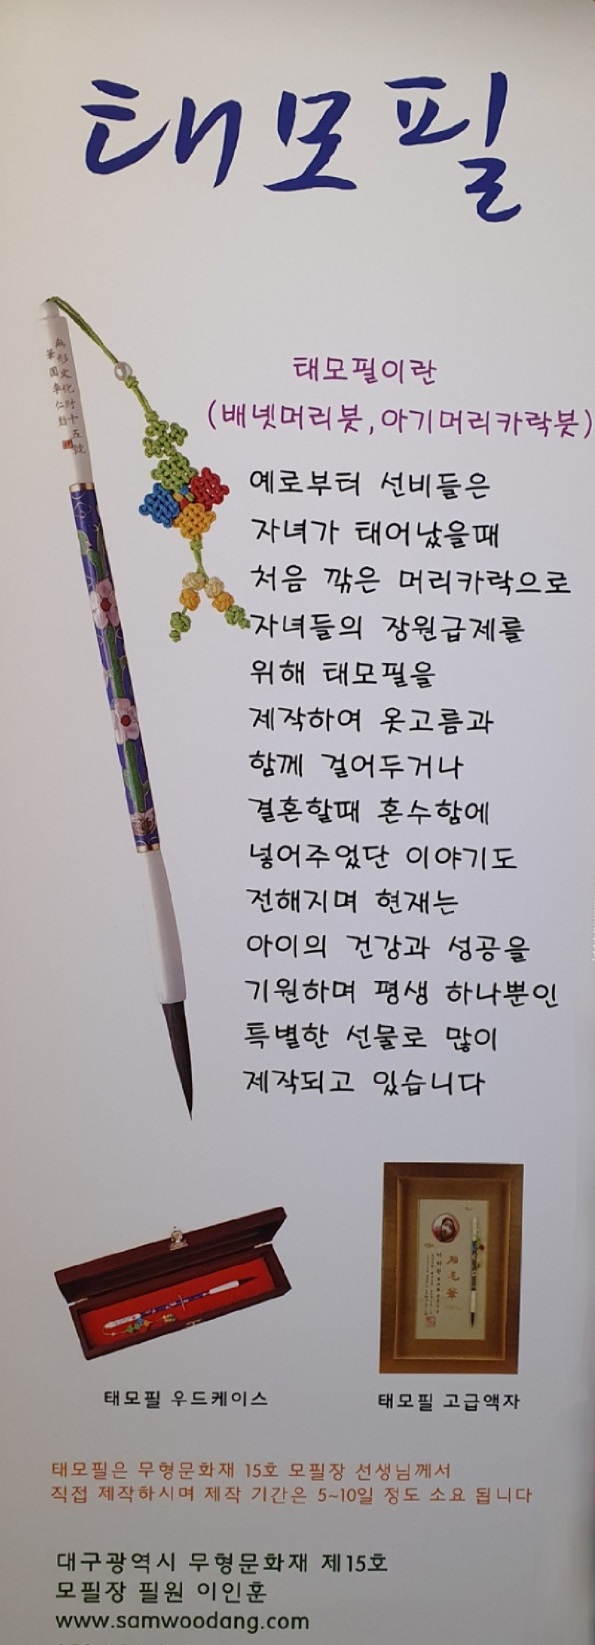 태모필
태모필이란
(배넷머리붓,아기머리카락붓)
예로부터 선비들은
자녀가 태어났을때
처음 깎은 머리카락으로
자녀들의 장원급제를
위해 태모필을
제작하여 옷고름과
함께 걸어두거나
결혼할때 혼수함에
넣어주었단 이야기도
전해지며 현재는
아이의 건강과 성공을
기원하며 평생 하나뿐인
특별한 선물로 많이
제작되고 있습니다
無形文化財十五號
筆匠李仁勳
胎毛筆
태모필 우드케이스
태모필 고급액자
태모필은 무형문화재 15호 모필장 선생님께서
직접 제작하시며 제작 기간은 5~10일 정도 소요 됩니다
대구광역시 무형문화재 제15호
모필장 필원 이인훈
www.samwoodang.com